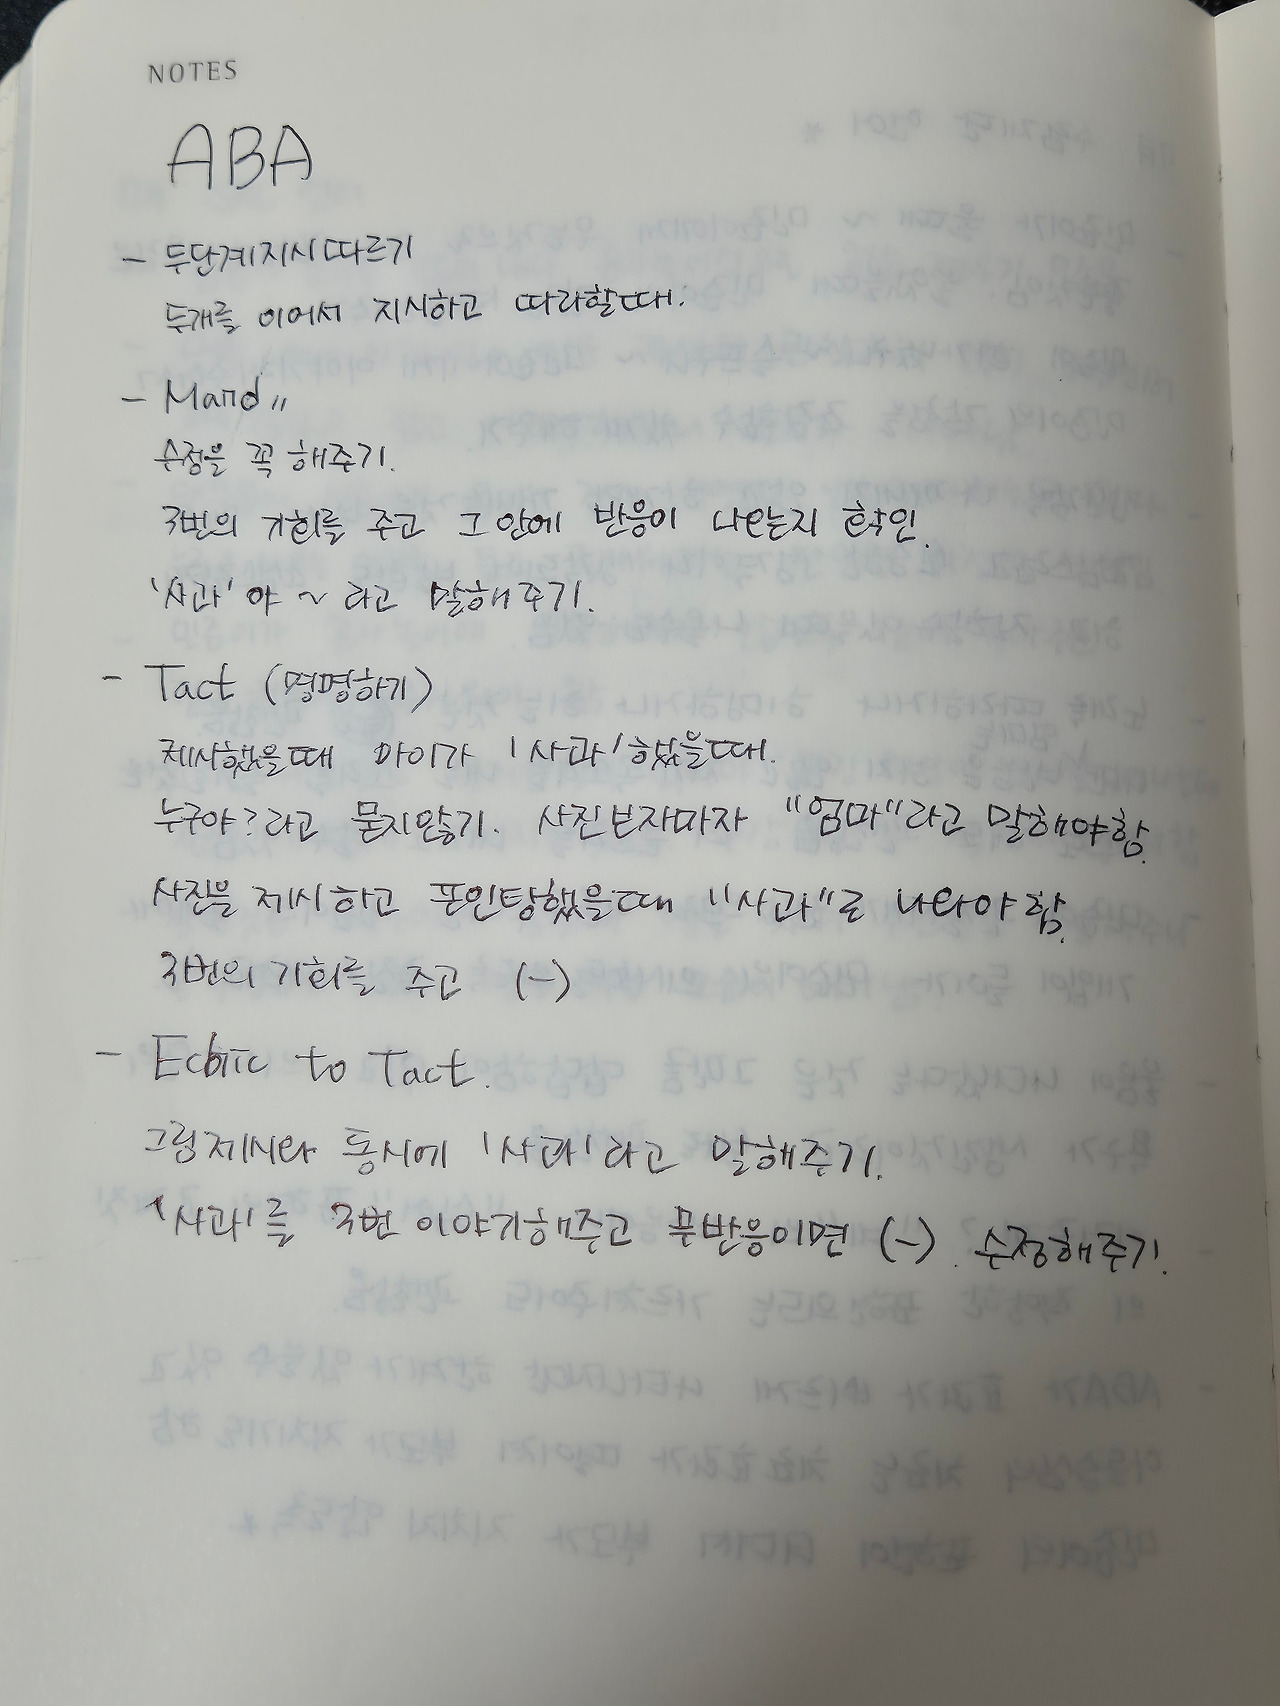 NOTES
ABA
- 두단계지시따르기
두개를 이어서 지시하고 따라할때.
- Mand "
수정을 꼭 해주기.
3번의 기회를 주고 그 안에 반응이 나오는지 확인.
'사과'야 ~ 라고 말해주기.
- Tact (명명하기)
제시했을때 아이가 '사과'했을때.
누구야? 라고 묻지않기. 사진보자마자 "엄마"라고 말해야함.
사진을 제시하고 포인팅했을때 "사과"로 나와야함.
3번의 기회를 주고 (-)
- Echoic to Tact.
그림제시와 동시에 '사과'라고 말해주기.
'사과'를 3번 이야기해주고 무반응이면 (-). 수정해주기.